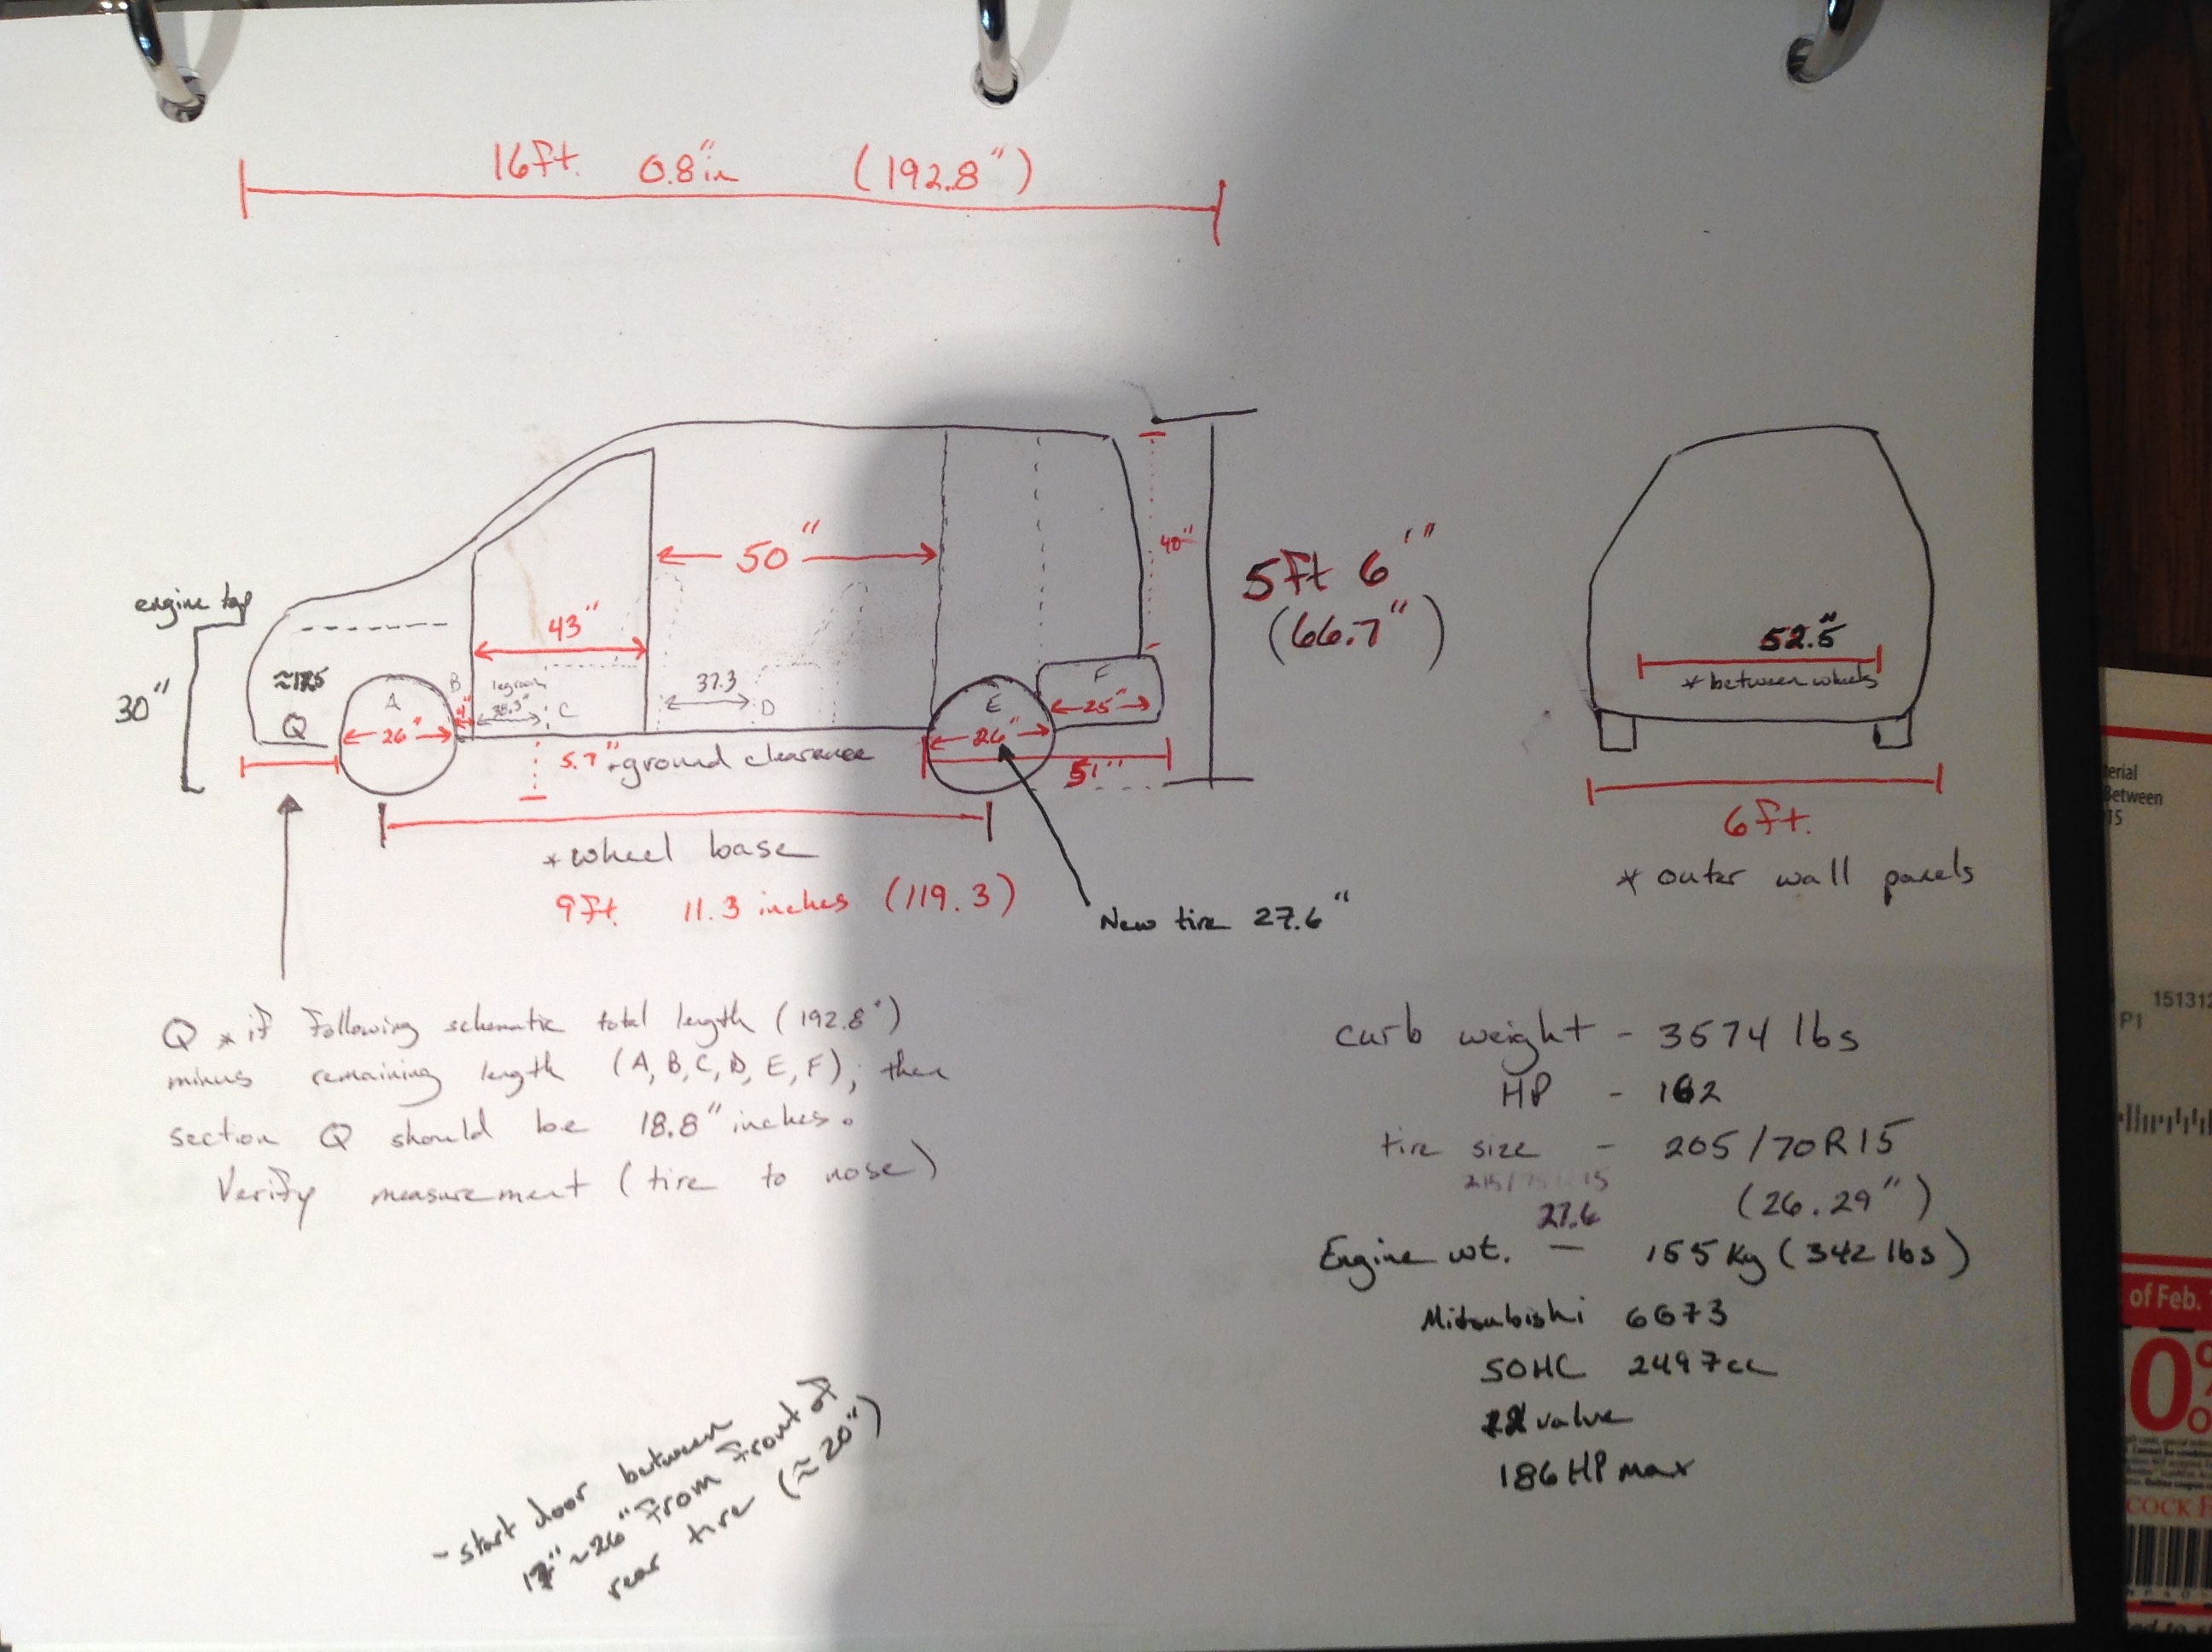 16ft. 0.8"in (192.8")
engine top
30"
≈17.5
Q
A
26"
B
4"
43"
legroom
38.3"
C
50"
37.3
D
E
26"
F
25"
51"
40"
5ft 6'"
(66.7")
5.7" ground clearance
*wheel base
9ft 11.3 inches (119.3)
New tire 27.6"
52.5"
*between wheels
6ft.
* outer wall panels
Q * if following schematic total length (192.8")
minus remaining length (A, B, C, D, E, F), then
section Q should be 18.8" inches.
Verify measurement (tire to nose)
curb weight - 3574 lbs
HP - 162
tire size - 205/70R15
215/75R15
27.6 (26.29")
Engine wt. — 155 Kg (342 lbs)
Mitsubishi 6G73
SOHC 2497cc
valve
186 HP max
- start door between
17"~26" from front of
rear tire (≈20")
erial
Between
15
151312
P1
of Feb.
0%
COCK F